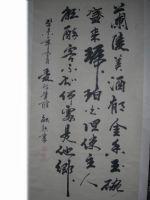 蘭陵美酒郁金香玉碗
盛来琥珀光但使主人
能醉客不知何處是他鄉
癸未年